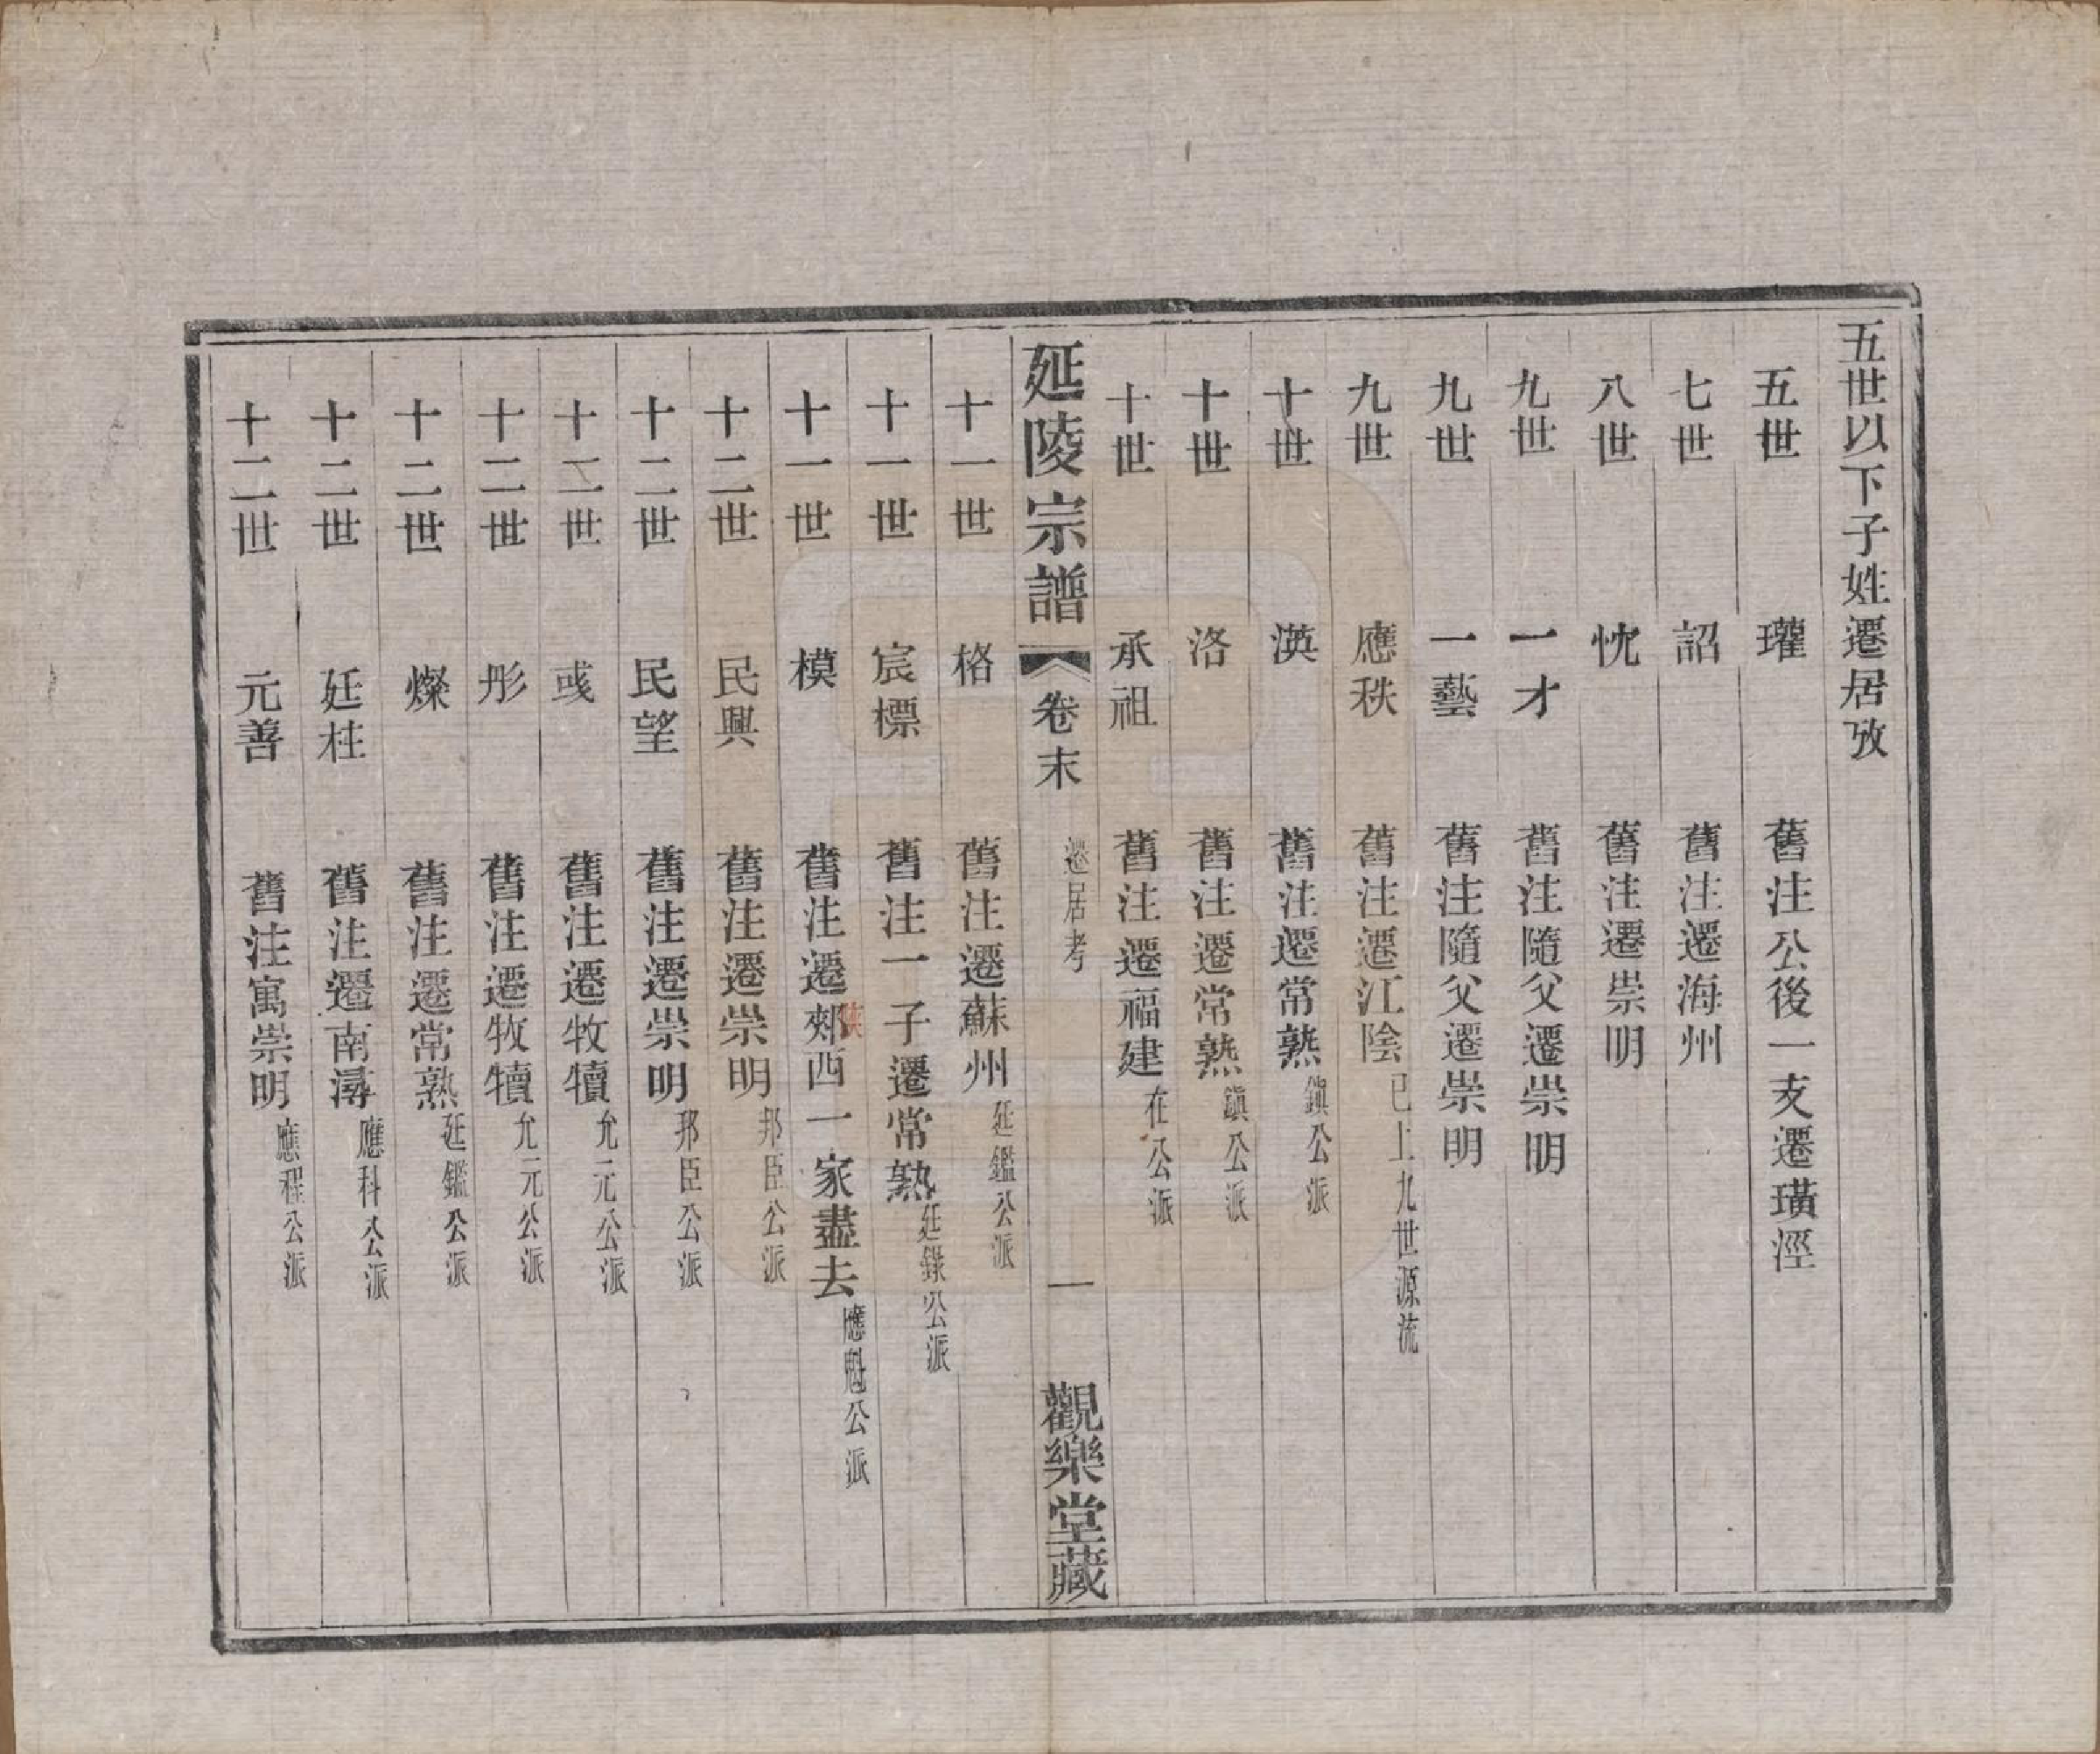 五世以下子姓遷居攷
五世 瓘 舊注公後一支遷璜涇
七世 詔 舊注遷海州
八世 忱 舊注遷崇明
九世 一才 舊注隨父遷崇明
九世 一藝 舊注隨父遷崇明
九世 應秩 舊注遷江陰已上九世源流
十世 渶 舊注遷常熟鎮公派
十世 洛 舊注遷常熟鎮公派
十世 承祖 舊注遷福建在公派
延陵宗譜 卷末 遷居考 一 觀樂堂藏
十一世 格 舊注遷蘇州延鑑公派
十一世 宸標 舊注一子遷常熟廷錄公派
十一世 模 舊注遷郟西一家盡去應魁公派
陝
十二世 民興 舊注遷崇明邦臣公派
十二世 民望 舊注遷崇明邦臣公派
十二世 彧 舊注遷牧犢允元公派
十二世 彤 舊注遷牧犢允元公派
十二世 燦 舊注遷常熟延鑑公派
十二世 廷柱 舊注遷南潯應科公派
十二世 元善 舊注寓崇明應程公派